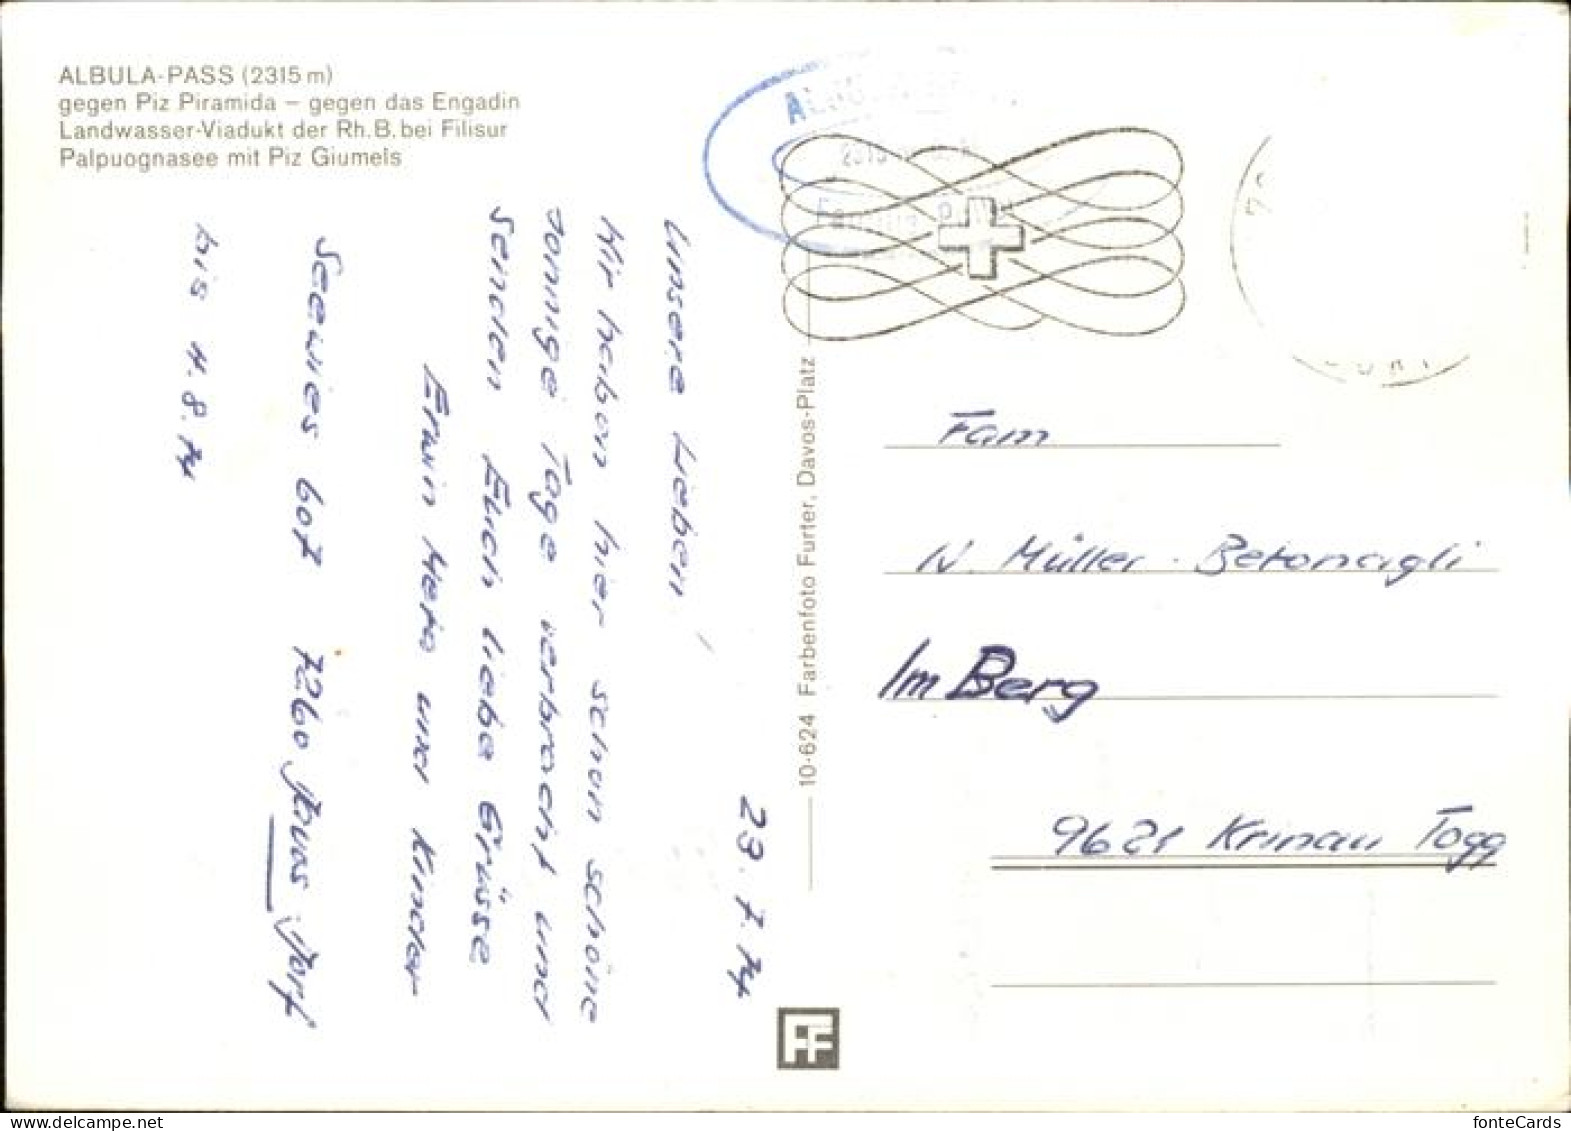 ALBULA-PASS (2315 m)
gegen Piz Piramida – gegen das Engadin
Landwasser-Viadukt der Rh.B. bei Filisur
Palpuognasee mit Piz Giumels
23. 7. 74
Unsere Lieben!
Wir haben hier schon schöne
sonnige Tage verbracht und
senden Euch liebe Grüsse
Erwin und Kinder
Seewies 607 7260 Davos Dorf
bis 4.8.74
10-624 Farbenfoto Furter, Davos-Platz
FF
Fam
N. Müller - Betonagli
Im Berg
9621 Krinau Togg
fonteCards